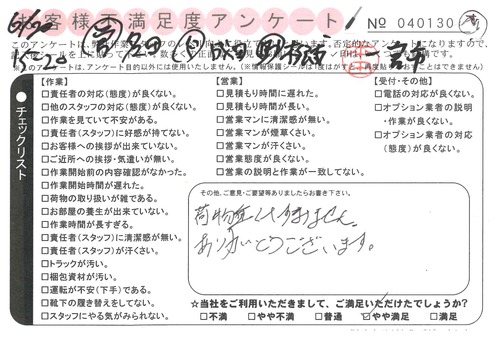 お客様不満足度アンケート
No 040130
【作業】
□責任者の対応(態度)が良くない。
□他のスタッフの対応(態度)が良くない。
□作業を見ていて不安がある。
□責任者(スタッフ)に好感が持てない。
□お客様への挨拶が出来ていない。
□ご近所への挨拶・気遣いが無い。
□作業開始前の内容確認がなかった。
□作業開始時間が遅れた。
□荷物の取り扱いが雑である。
□お部屋の養生が出来ていない。
□作業時間が長すぎる。
□責任者(スタッフ)に清潔感が無い。
□責任者(スタッフ)が汗くさい。
□トラックが汚い。
□梱包資材が汚い。
□運転が不安(下手)である。
□靴下の履き替えをしてない。
□スタッフにやる気がみられない。
【営業】
□見積もり時間に遅れた。
□見積もり時間が長い。
□営業マンに清潔感が無い。
□営業マンが煙草くさい。
□営業マンが汗くさい。
□営業態度が良くない。
□営業の説明と作業が一致してない。
【受付・その他】
□電話の対応が良くない。
□オプション業者の説明
・作業が良くない。
□オプション業者の対応
(態度)が良くない。
チェックリスト
その他、ご意見・ご要望等ありましたらお書き下さい。
ありがとうございます。
☆当社をご利用いただきまして、ご満足いただけたでしょうか?
□不満 □やや不満 □普通 ☑やや満足 □満足